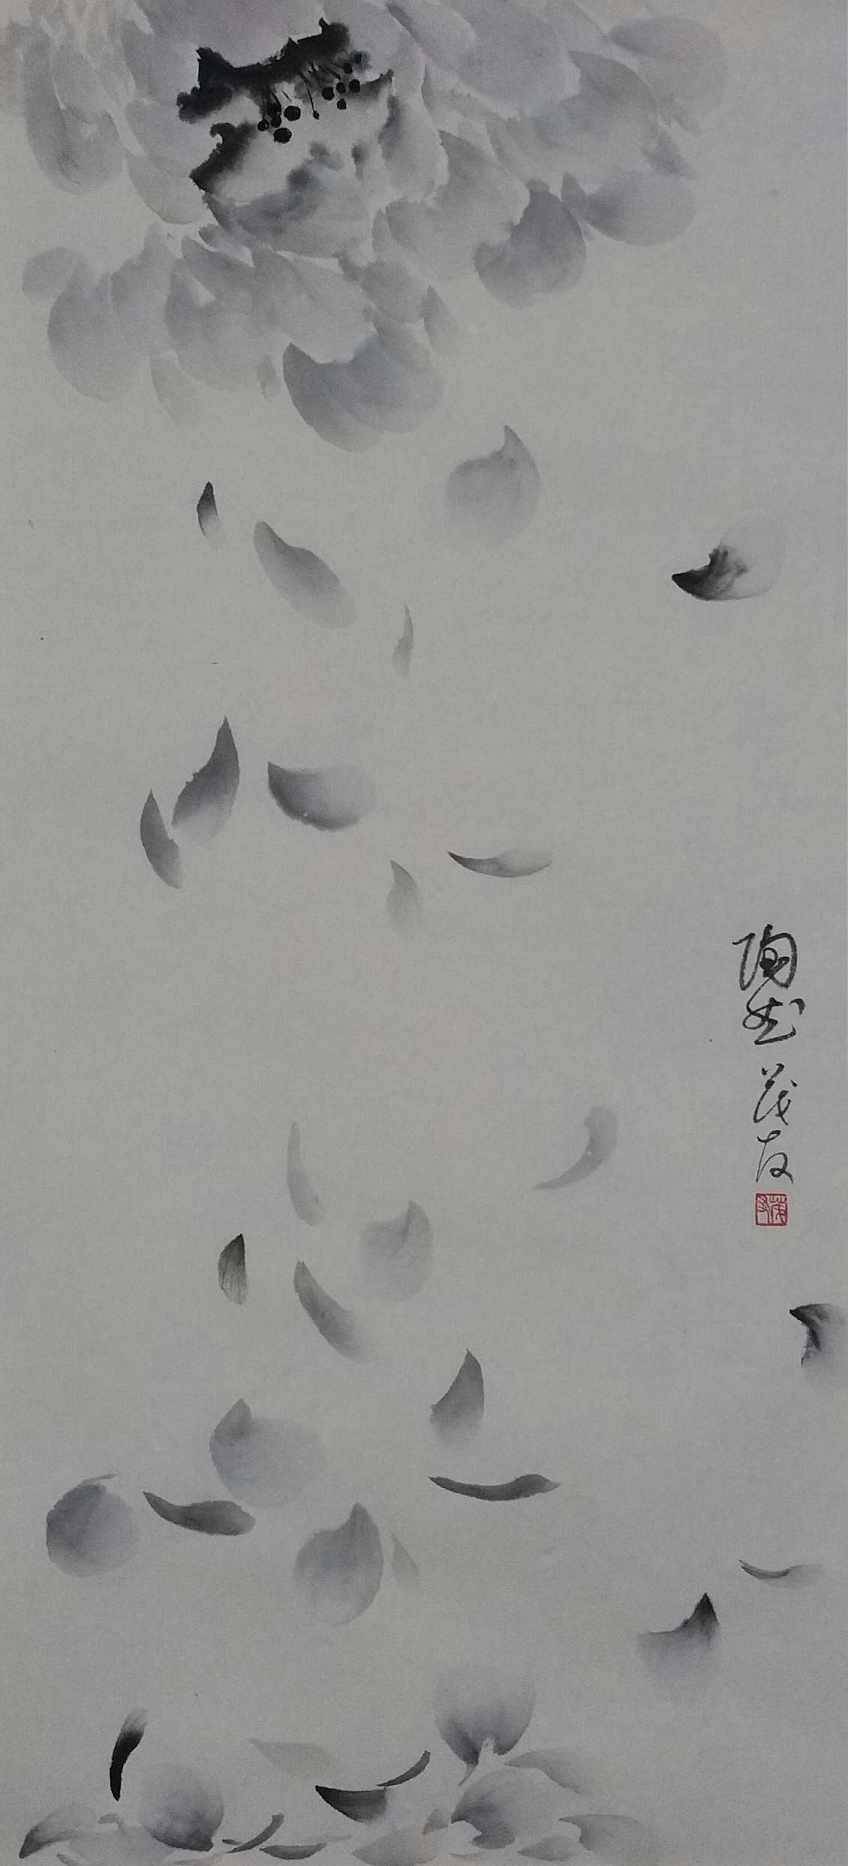 陶然 茂友